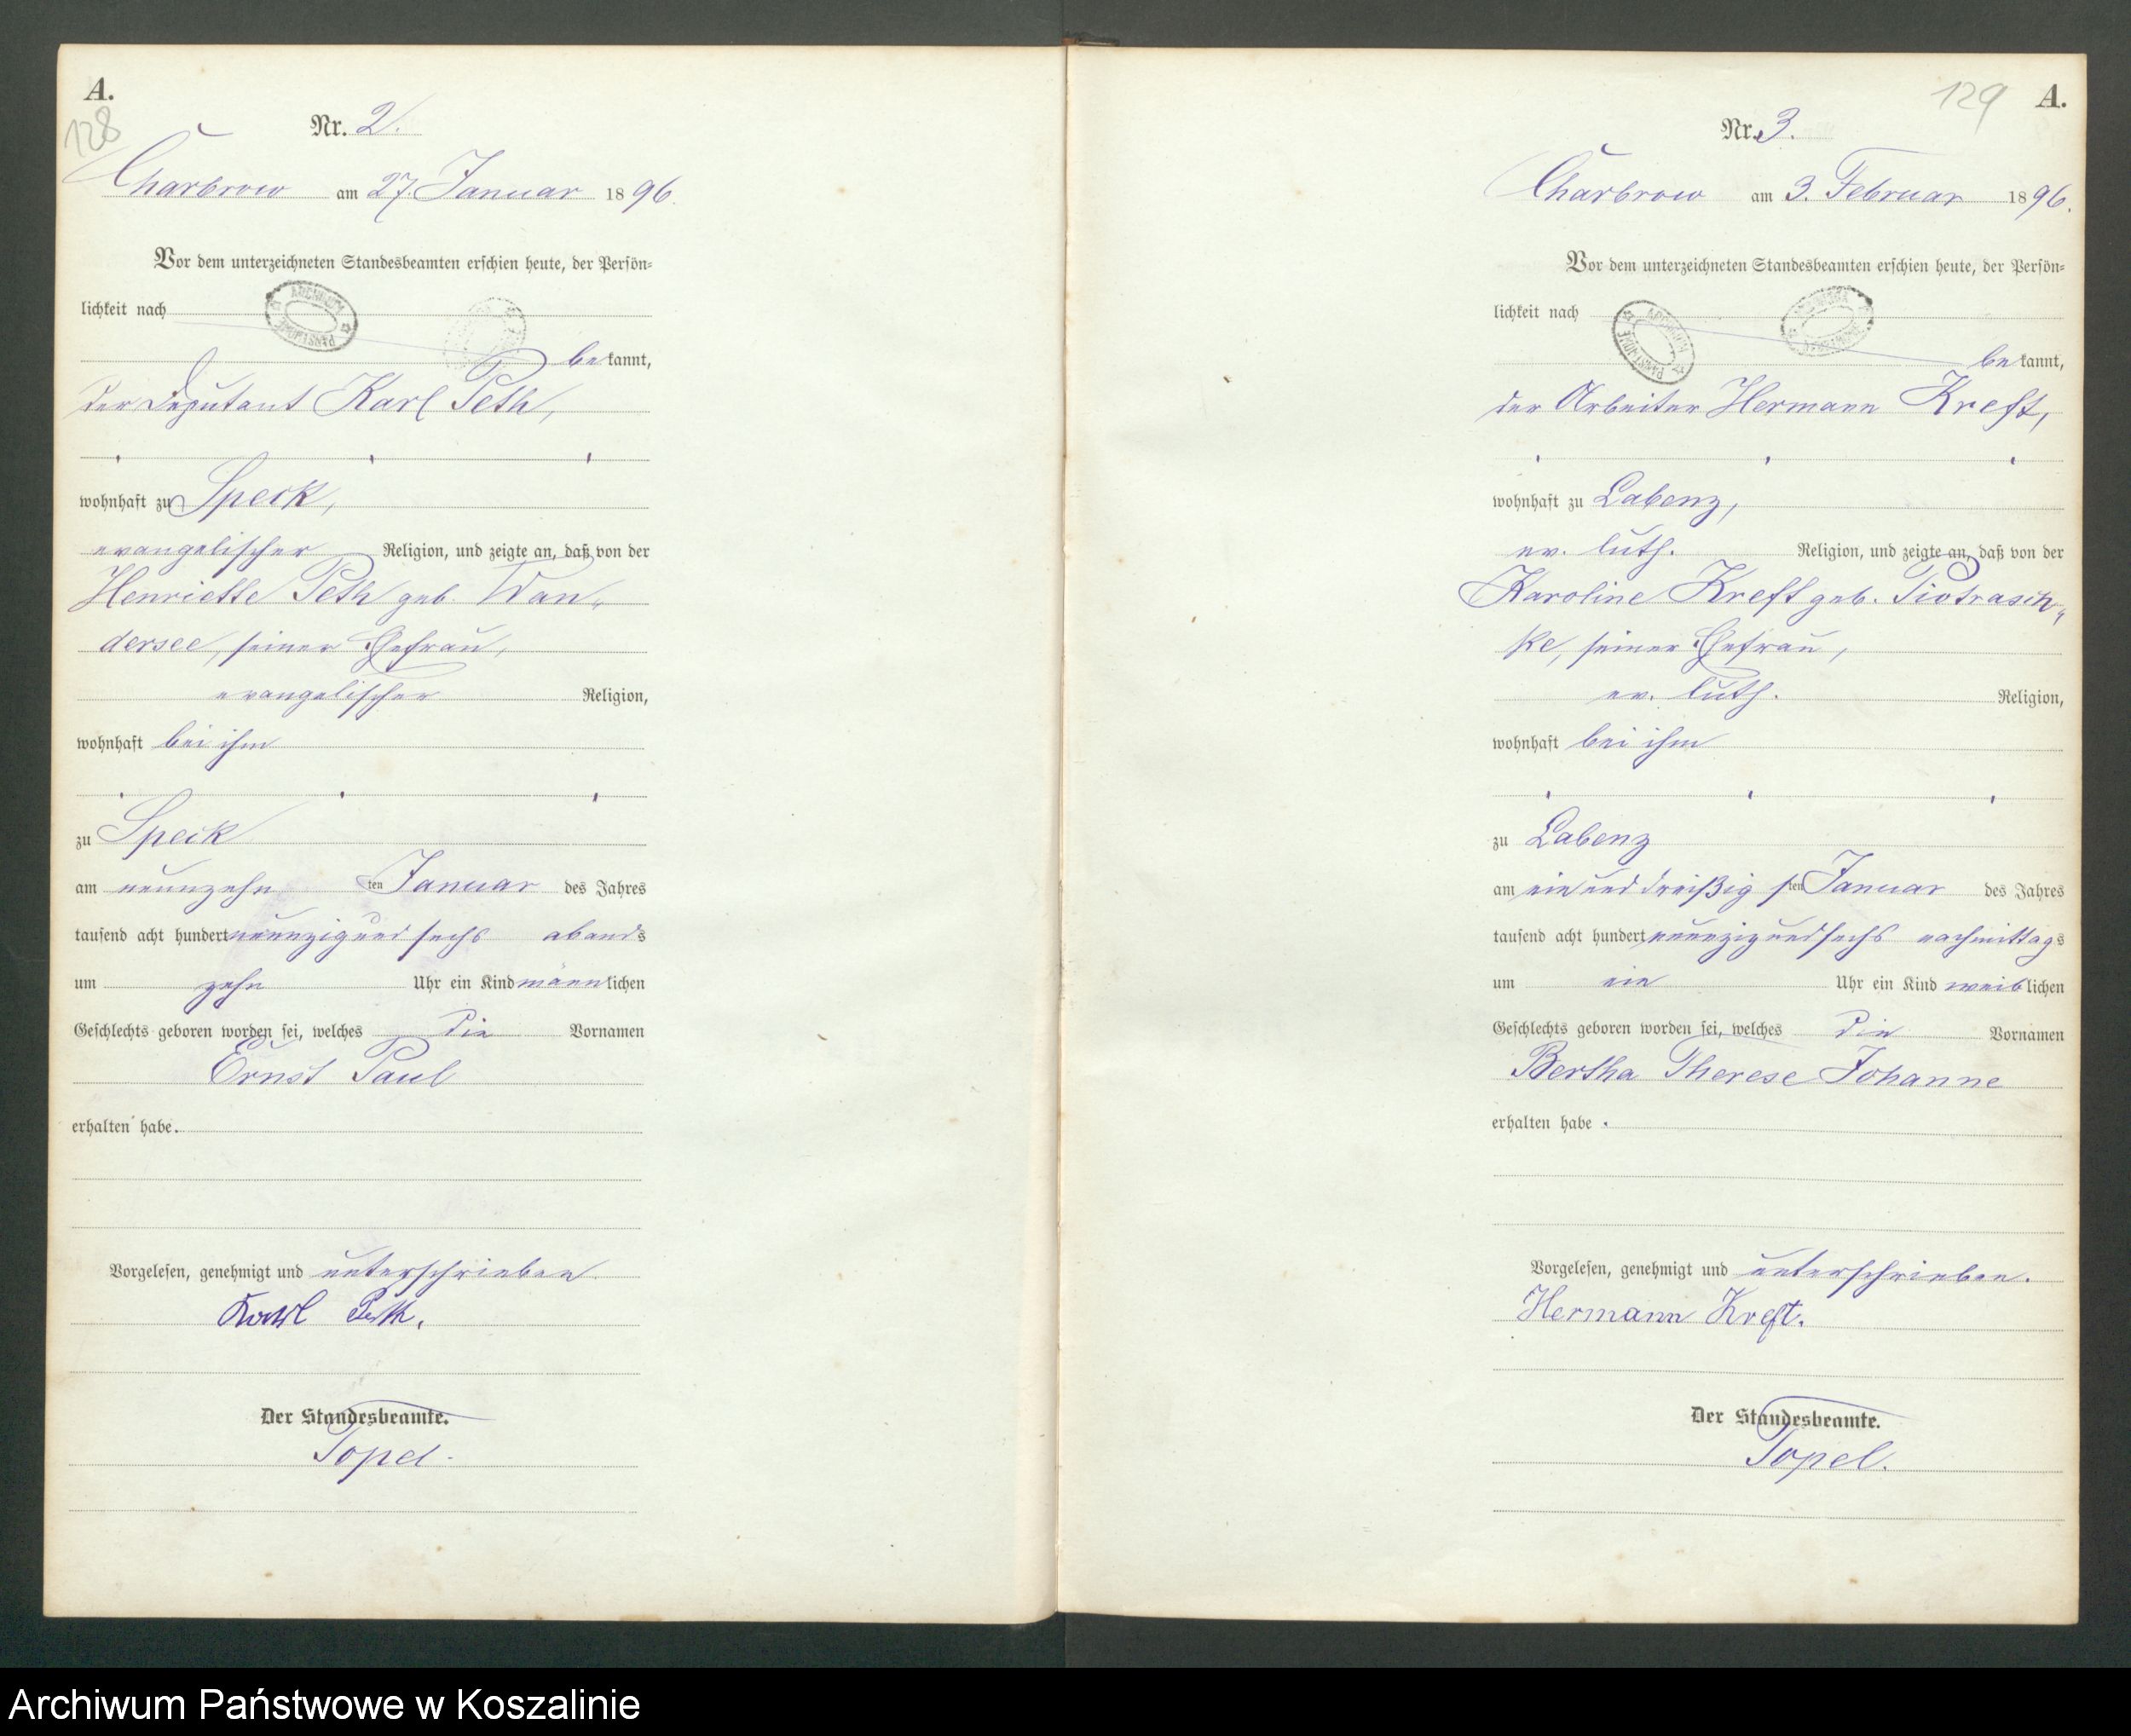 A.
128
Nr. 2.
Charbrow am 27. Januar 1896.
Vor dem unterzeichneten Standesbeamten erschien heute, der Persön-
lichkeit nach
bekannt,
der Deputant Karl Peth,
wohnhaft zu Speck,
evangelischer Religion, und zeigte an, daß von der
Henriette Peth geb. Wan-
dersee, seiner Ehefrau,
evangelischer Religion,
wohnhaft bei ihm
zu Speck
am neunzehn ten Januar des Jahres
tausend acht hundert neunzig und sechs abends
um zehn Uhr ein Kind männlichen
Geschlechts geboren worden sei, welches die Vornamen
Ernst Paul
erhalten habe.
Vorgelesen, genehmigt und unterschrieben
Karl Peth.
Der Standesbeamte.
Topel.
129 A.
Nr. 3.
Charbrow am 3. Februar 1896.
Vor dem unterzeichneten Standesbeamten erschien heute, der Persön-
lichkeit nach
bekannt,
der Arbeiter Hermann Kreft,
wohnhaft zu Labenz,
ev. luth. Religion, und zeigte an, daß von der
Karoline Kreft geb. Piotrasch-
ke, seiner Ehefrau,
ev. luth. Religion,
wohnhaft bei ihm
zu Labenz
am ein und dreißig sten Januar des Jahres
tausend acht hundert neunzig und sechs nachmittags
um ein Uhr ein Kind weiblichen
Geschlechts geboren worden sei, welches die Vornamen
Bertha Therese Johanne
erhalten habe.
Vorgelesen, genehmigt und unterschrieben.
Hermann Kreft.
Der Standesbeamte.
Topel.
Archiwum Państwowe w Koszalinie